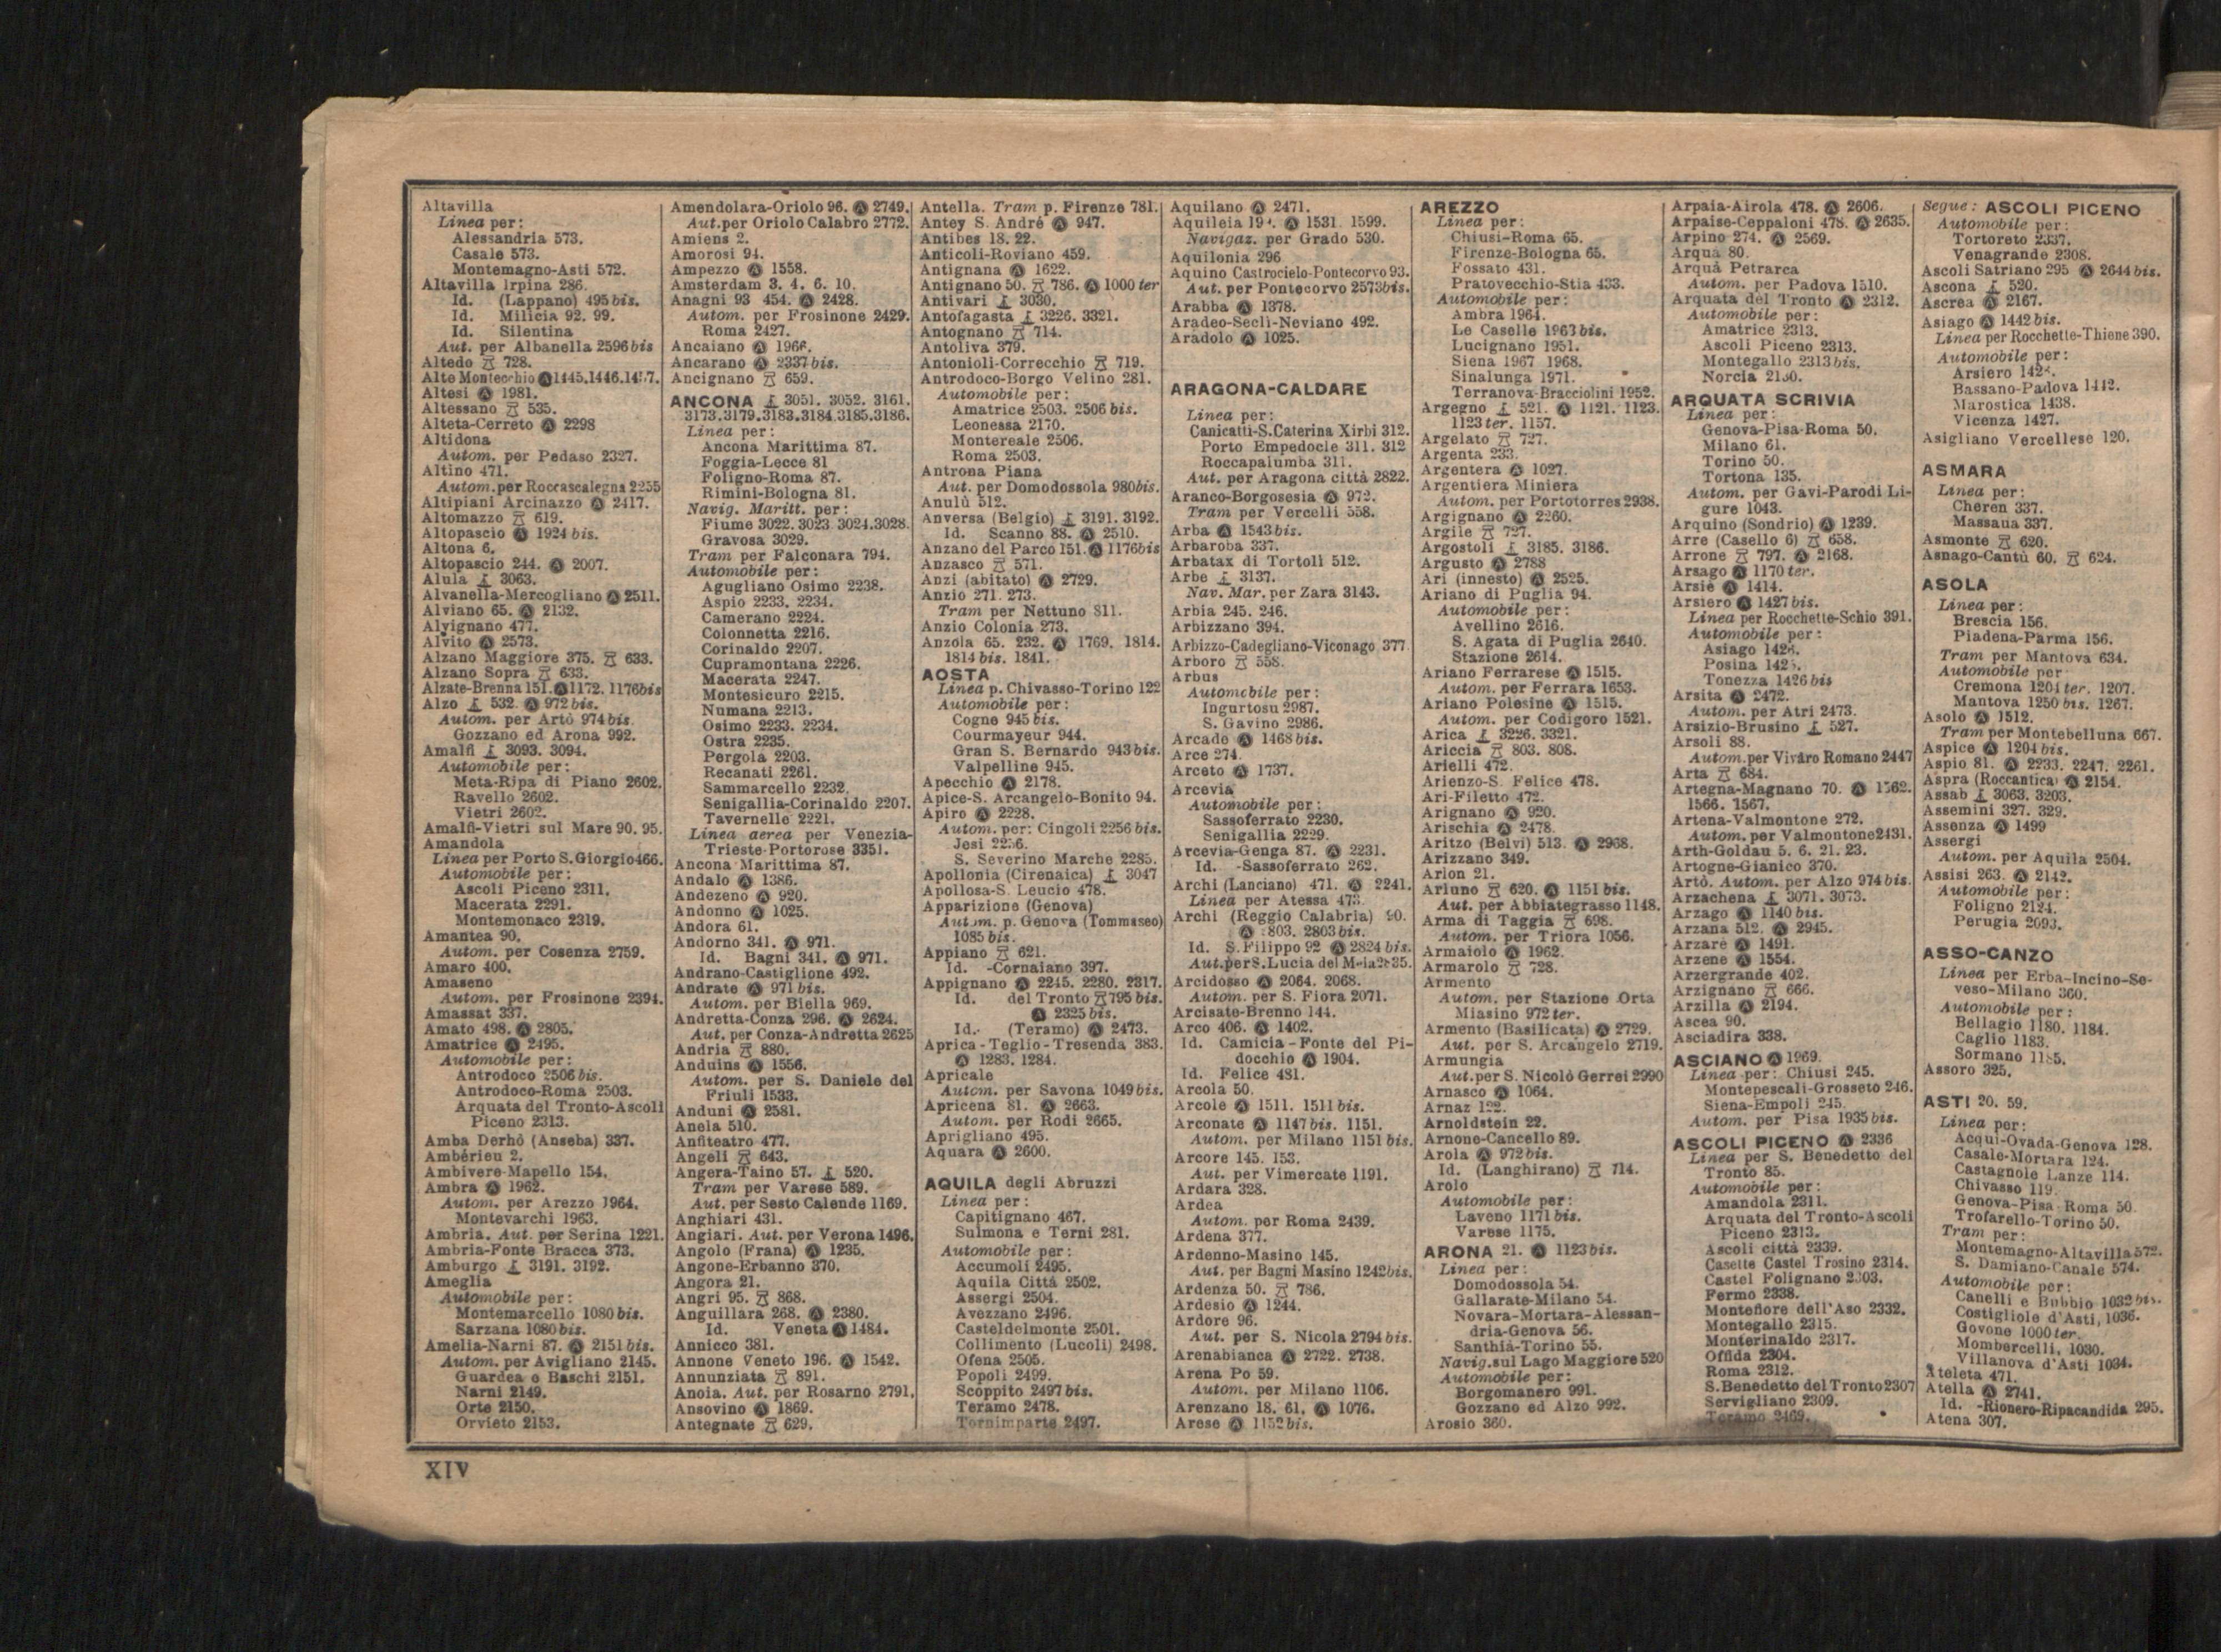 Altavilla
Linea per:
Alessandria 573.
Casale 573.
Montemagno-Asti 572.
Altavilla Irpina 286.
Id. (Lappano) 495 bis.
Id. Milicia 92. 99.
Id. Silentina
Aut. per Albanella 2596 bis
Altedo 728.
Alte Montecchio Ⓐ 1445. 1446.
Altesi Ⓐ 1981.
Altessano 535.
Alteta-Cerreto Ⓐ 2298
Altidona
Autom. per Pedaso 2327.
Altino 471.
Autom. per Roccascalegna 2255
Altipiani Arcinazzo Ⓐ 2417.
Altomazzo 619.
Altopascio Ⓐ 1924 bis.
Altona 6.
Altopascio 244. Ⓐ 2007.
Alula 3063.
Alvanella-Mercogliano Ⓐ 2511.
Alviano 65. Ⓐ 2132.
Alvignano 477.
Alvito Ⓐ 2573.
Alzano Maggiore 375. 633.
Alzano Sopra 633.
Alzate-Brenna 151. Ⓐ 1172. 1176 bis
Alzo 532. Ⓐ 972 bis.
Autom. per Artò 974 bis.
Gozzano ed Arona 992.
Amalfi 3093. 3094.
Automobile per:
Meta-Ripa di Piano 2602.
Ravello 2602.
Vietri 2602.
Amalfi-Vietri sul Mare 90. 95.
Amandola
Linea per Porto S. Giorgio 466.
Automobile per:
Ascoli Piceno 2311.
Macerata 2291.
Montemonaco 2319.
Amantea 90.
Autom. per Cosenza 2759.
Amaro 400.
Amaseno
Autom. per Frosinone 2394.
Amassat 337.
Amato 498. Ⓐ 2805.
Amatrice Ⓐ 2495.
Automobile per:
Antrodoco 2506 bis.
Antrodoco-Roma 2503.
Arquata del Tronto-Ascoli
Piceno 2313.
Amba Derhò (Anseba) 337.
Ambérieu 2.
Ambivere-Mapello 154.
Ambra Ⓐ 1962.
Autom. per Arezzo 1964.
Montevarchi 1963.
Ambria. Aut. per Serina 1221.
Ambria-Fonte Bracca 373.
Amburgo 3191. 3192.
Ameglia
Automobile per:
Montemarcello 1080 bis.
Sarzana 1080 bis.
Amelia-Narni 87. Ⓐ 2151 bis.
Autom. per Avigliano 2145.
Guardea e Baschi 2151.
Narni 2149.
Orte 2150.
Orvieto 2153.
Amendolara-Oriolo 96. Ⓐ 2749.
Aut. per Oriolo Calabro 2772.
Amiens 2.
Amorosi 94.
Ampezzo Ⓐ 1558.
Amsterdam 3. 4. 6. 10.
Anagni 93 454. Ⓐ 2428.
Autom. per Frosinone 2429.
Roma 2427.
Ancaiano Ⓐ 1966.
Ancarano Ⓐ 2337 bis.
Ancignano 659.
ANCONA 3051. 3052. 3161.
3173. 3179. 3183. 3184. 3185. 3186.
Linea per:
Ancona Marittima 87.
Foggia-Lecce 81
Foligno-Roma 87.
Rimini-Bologna 81.
Navig. Maritt. per:
Fiume 3022. 3023. 3024. 3028.
Gravosa 3029.
Tram per Falconara 794.
Automobile per:
Agugliano Osimo 2238.
Aspio 2233. 2234.
Camerano 2224.
Colonnetta 2216.
Corinaldo 2207.
Cupramontana 2226.
Macerata 2247.
Montesicuro 2215.
Numana 2213.
Osimo 2233. 2234.
Ostra 2235.
Pergola 2203.
Recanati 2261.
Sammarcello 2232.
Senigallia-Corinaldo 2207.
Tavernelle 2221.
Linea aerea per Venezia-
Trieste-Portorose 3351.
Ancona Marittima 87.
Andalo Ⓐ 1386.
Andezeno Ⓐ 920.
Andonno Ⓐ 1025.
Andora 61.
Andorno 341. Ⓐ 971.
Id. Bagni 341. Ⓐ 971.
Andrano-Castiglione 492.
Andrate Ⓐ 971 bis.
Autom. per Biella 969.
Andretta-Conza 296. Ⓐ 2624.
Aut. per Conza-Andretta 2625
Andria 880.
Anduins Ⓐ 1556.
Autom. per S. Daniele del
Friuli 1533.
Anduni Ⓐ 2581.
Anela 510.
Anfiteatro 477.
Angeli 643.
Angera-Taino 57. 520.
Tram per Varese 589.
Aut. per Sesto Calende 1169.
Anghiari 431.
Angiari. Aut. per Verona 1496.
Angolo (Frana) Ⓐ 1235.
Angone-Erbanno 370.
Angora 21.
Angri 95. 868.
Anguillara 268. Ⓐ 2380.
Id. Veneta Ⓐ 1484.
Annicco 381.
Annone Veneto 196. Ⓐ 1542.
Annunziata 891.
Anoia. Aut. per Rosarno 2791.
Ansovino Ⓐ 1869.
Antegnate 629.
Antella. Tram p. Firenze 781.
Antey S. André Ⓐ 947.
Antibes 18. 22.
Anticoli-Roviano 459.
Antignana Ⓐ 1622.
Antignano 50. 786. Ⓐ 1000 ter
Antivari 3030.
Antofagasta 3226. 3321.
Antognano 714.
Antoliva 379.
Antonioli-Correcchio 719.
Antrodoco-Borgo Velino 281.
Automobile per:
Amatrice 2503. 2506 bis.
Leonessa 2170.
Montereale 2506.
Roma 2503.
Antrona Piana
Aut. per Domodossola 980 bis.
Anulù 512.
Anversa (Belgio) 3191. 3192.
Id. Scanno 88. Ⓐ 2510.
Anzano del Parco 151. Ⓐ 1176 bis
Anzasco 571.
Anzi (abitato) Ⓐ 2729.
Anzio 271. 273.
Tram per Nettuno 811.
Anzio Colonia 273.
Anzola 65. 232. Ⓐ 1769. 1814.
1814 bis. 1841.
AOSTA
Linea p. Chivasso-Torino 122
Automobile per:
Cogne 945 bis.
Courmayeur 944.
Gran S. Bernardo 943 bis.
Valpelline 945.
Apecchio Ⓐ 2178.
Apice-S. Arcangelo-Bonito 94.
Apiro Ⓐ 2228.
Autom. per: Cingoli 2256 bis.
Jesi 2256.
S. Severino Marche 2285.
Apollonia (Cirenaica) 3047
Apollosa-S. Leucio 478.
Apparizione (Genova)
Autom. p. Genova (Tommaseo)
1085 bis.
Appiano 621.
Id. -Cornaiano 397.
Appignano Ⓐ 2245. 2280. 2317.
Id. del Tronto 795 bis.
Ⓐ 2325 bis.
Id. (Teramo) Ⓐ 2473.
Aprica-Teglio-Tresenda 383.
Ⓐ 1283. 1284.
Apricale
Autom. per Savona 1049 bis.
Apricena 81. Ⓐ 2663.
Autom. per Rodi 2665.
Aprigliano 495.
Aquara Ⓐ 2600.
AQUILA degli Abruzzi
Linea per:
Capitignano 467.
Sulmona e Terni 281.
Automobile per:
Accumoli 2495.
Aquila Città 2502.
Assergi 2504.
Avezzano 2496.
Casteldelmonte 2501.
Collimento (Lucoli) 2498.
Ofena 2505.
Popoli 2499.
Scoppito 2497 bis.
Teramo 2478.
Tornimparte 2497.
Aquilano Ⓐ 2471.
Aquileia Ⓐ 1531. 1599.
Navigaz. per Grado 530.
Aquilonia 296
Aquino Castrocielo-Pontecorvo 93.
Aut. per Pontecorvo 2573 bis.
Arabba Ⓐ 1378.
Aradeo-Seclì-Neviano 492.
Aradolo Ⓐ 1025.
ARAGONA-CALDARE
Linea per:
Canicattì-S. Caterina Xirbi 312.
Porto Empedocle 311. 312
Roccapalumba 311.
Aut. per Aragona città 2822.
Aranco-Borgosesia Ⓐ 972.
Tram per Vercelli 558.
Arba Ⓐ 1543 bis.
Arbaroba 337.
Arbatax di Tortolì 512.
Arbe 3137.
Nav. Mar. per Zara 3143.
Arbia 245. 246.
Arbizzano 394.
Arbizzo-Cadegliano-Viconago 377
Arboro 558.
Arbus
Automobile per:
Ingurtosu 2987.
S. Gavino 2986.
Arcade Ⓐ 1468 bis.
Arce 274.
Arceto Ⓐ 1737.
Arcevia
Automobile per:
Sassoferrato 2230.
Senigallia 2229.
Arcevia-Genga 87. Ⓐ 2231.
Id. -Sassoferrato 262.
Archi (Lanciano) 471. Ⓐ 2241.
Linea per Atessa 473.
Archi (Reggio Calabria) 90.
Ⓐ 2803. 2803 bis.
Id. S. Filippo 92 Ⓐ 2824 bis.
Aut. per S. Lucia del
Arcidosso Ⓐ 2064. 2068.
Autom. per S. Fiora 2071.
Arcisate-Brenno 144.
Arco 406. Ⓐ 1402.
Id. Camicia-Fonte del Pi-
docchio Ⓐ 1904.
Id. Felice 481.
Arcola 50.
Arcole Ⓐ 1511. 1511 bis.
Arconate Ⓐ 1147 bis. 1151.
Autom. per Milano 1151 bis.
Arcore 145. 153.
Aut. per Vimercate 1191.
Ardara 328.
Ardea
Autom. per Roma 2439.
Ardena 377.
Ardenno-Masino 145.
Aut. per Bagni Masino 1242 bis.
Ardenza 50. 786.
Ardesio Ⓐ 1244.
Ardore 96.
Aut. per S. Nicola 2794 bis.
Arenabianca Ⓐ 2722. 2738.
Arena Po 59.
Autom. per Milano 1106.
Arenzano 18. 61. Ⓐ 1076.
Arese Ⓐ 1152 bis.
AREZZO
Linea per:
Chiusi-Roma 65.
Firenze-Bologna 65.
Fossato 431.
Pratovecchio-Stia 433.
Automobile per:
Ambra 1964.
Le Caselle 1963 bis.
Lucignano 1951.
Siena 1967 1968.
Sinalunga 1971.
Terranova-Bracciolini 1952.
Argegno 521. Ⓐ 1121. 1123.
1123 ter. 1157.
Argelato 727.
Argenta 233.
Argentera Ⓐ 1027.
Argentiera Miniera
Autom. per Portotorres 2938.
Argignano Ⓐ 2260.
Argile 727.
Argostoli 3185. 3186.
Argusto Ⓐ 2788
Ari (innesto) Ⓐ 2525.
Ariano di Puglia 94.
Automobile per:
Avellino 2616.
S. Agata di Puglia 2640.
Stazione 2614.
Ariano Ferrarese Ⓐ 1515.
Autom. per Ferrara 1653.
Ariano Polesine Ⓐ 1515.
Autom. per Codigoro 1521.
Arica 3226. 3321.
Ariccia 803. 808.
Arielli 472.
Arienzo-S. Felice 478.
Ari-Filetto 472.
Arignano Ⓐ 920.
Arischia Ⓐ 2478.
Aritzo (Belvì) 513. Ⓐ 2968.
Arizzano 349.
Arlon 21.
Arluno 620. Ⓐ 1151 bis.
Aut. per Abbiategrasso 1148.
Arma di Taggia 698.
Autom. per Triora 1056.
Armaiolo Ⓐ 1962.
Armarolo 728.
Armento
Autom. per Stazione Orta
Miasino 972 ter.
Armento (Basilicata) Ⓐ 2729.
Aut. per S. Arcangelo 2719.
Armungia
Aut. per S. Nicolò Gerrei 2990
Arnasco Ⓐ 1064.
Arnaz 122.
Arnoldstein 22.
Arnone-Cancello 89.
Arola Ⓐ 972 bis.
Id. (Langhirano) 714.
Arolo
Automobile per:
Laveno 1171 bis.
Varese 1175.
ARONA 21. Ⓐ 1123 bis.
Linea per:
Domodossola 54.
Gallarate-Milano 54.
Novara-Mortara-Alessan-
dria-Genova 56.
Santhià-Torino 55.
Navig. sul Lago Maggiore 520
Automobile per:
Borgomanero 991.
Gozzano ed Alzo 992.
Arosio 360.
Arpaia-Airola 478. Ⓐ 2606.
Arpaise-Ceppaloni 478. Ⓐ 2635.
Arpino 274. Ⓐ 2569.
Arquà 80.
Arquà Petrarca
Autom. per Padova 1510.
Arquata del Tronto Ⓐ 2312.
Automobile per:
Amatrice 2313.
Ascoli Piceno 2313.
Montegallo 2313 bis.
Norcia
ARQUATA SCRIVIA
Linea per:
Genova-Pisa-Roma 50.
Milano 61.
Torino 50.
Tortona 135.
Autom. per Gavi-Parodi Li-
gure 1043.
Arquino (Sondrio) Ⓐ 1239.
Arre (Casello 6) 658.
Arrone 797. Ⓐ 2168.
Arsago Ⓐ 1170 ter.
Arsiè Ⓐ 1414.
Arsiero Ⓐ 1427 bis.
Linea per Rocchette-Schio 391.
Automobile per:
Asiago 1428.
Posina
Tonezza 1426 bis
Arsita Ⓐ 2472.
Autom. per Atri 2473.
Arsizio-Brusino 527.
Arsoli 88.
Autom. per Vivaro Romano 2447
Arta 684.
Artegna-Magnano 70. Ⓐ 1562.
1566. 1567.
Artena-Valmontone 272.
Autom. per Valmontone 2431.
Arth-Goldau 5. 6. 21. 23.
Artogne-Gianico 370.
Artò. Autom. per Alzo 974 bis.
Arzachena 3071. 3073.
Arzago Ⓐ 1140 bis.
Arzana 512. Ⓐ 2945.
Arzarè Ⓐ 1491.
Arzene Ⓐ 1554.
Arzergrande 402.
Arzignano 666.
Arzilla Ⓐ 2194.
Ascea 90.
Asciadira 338.
ASCIANO Ⓐ 1969.
Linea per: Chiusi 245.
Montepescali-Grosseto 246.
Siena-Empoli 245.
Autom. per Pisa 1935 bis.
ASCOLI PICENO Ⓐ 2336
Linea per S. Benedetto del
Tronto 85.
Automobile per:
Amandola 2311.
Arquata del Tronto-Ascoli
Piceno 2313.
Ascoli città 2339.
Casette Castel Trosino 2314.
Castel Folignano 2303.
Fermo 2338.
Montefiore dell'Aso 2332.
Montegallo 2315.
Monterinaldo 2317.
Offida 2304.
Roma 2312.
S. Benedetto del Tronto 2307
Servigliano 2309.
Teramo 2469.
Segue: ASCOLI PICENO
Automobile per:
Tortoreto 2337.
Venagrande 2308.
Ascoli Satriano 295 Ⓐ 2644 bis.
Ascona 520.
Ascrea Ⓐ 2167.
Asiago Ⓐ 1442 bis.
Linea per Rocchette-Thiene 390.
Automobile per:
Arsiero 1428.
Bassano-Padova 1442.
Marostica 1438.
Vicenza 1427.
Asigliano Vercellese 120.
ASMARA
Linea per:
Cheren 337.
Massaua 337.
Asmonte 620.
Asnago-Cantù 60. 624.
ASOLA
Linea per:
Brescia 156.
Piadena-Parma 156.
Tram per Mantova 634.
Automobile per
Cremona 1204 ter. 1207.
Mantova 1250 bis. 1267.
Asolo Ⓐ 1512.
Tram per Montebelluna 667.
Aspice Ⓐ 1204 bis.
Aspio 81. Ⓐ 2233. 2247. 2261.
Aspra (Roccantica) Ⓐ 2154.
Assab 3063. 3203.
Assemini 327. 329.
Assenza Ⓐ 1499
Assergi
Autom. per Aquila 2504.
Assisi 263. Ⓐ 2142.
Automobile per:
Foligno 2124.
Perugia 2093.
ASSO-CANZO
Linea per Erba-Incino-Se-
veso-Milano 360.
Automobile per:
Bellagio 1180. 1184.
Caglio 1183.
Sormano 1185.
Assoro 325.
ASTI 20. 59.
Linea per:
Acqui-Ovada-Genova 128.
Casale-Mortara 124.
Castagnole Lanze 114.
Chivasso 119.
Genova-Pisa-Roma 50.
Trofarello-Torino 50.
Tram per:
Montemagno-Altavilla 572.
S. Damiano-Canale 574.
Automobile per:
Canelli e Bubbio 1032 bis.
Costigliole d'Asti, 1036.
Govone 1000 ter.
Mombercelli, 1030.
Villanova d'Asti 1034.
Ateleta 471.
Atella Ⓐ 2741.
Id. -Rionero-Ripacandida 295.
Atena 307.
XIV